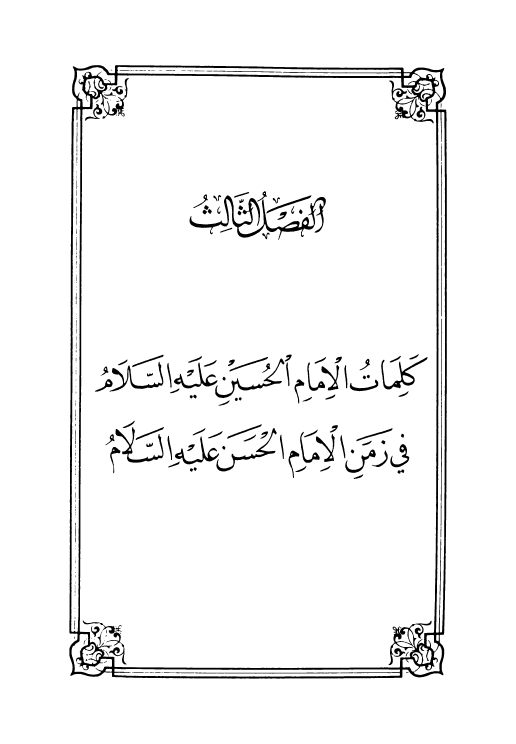 الفَصْلُ الثَّالِثُ
كَلِمَاتُ الْإِمَامِ الْحُسَيْنِ عَلَيْهِ السَّلَامُ
فِي زَمَنِ الْإِمَامِ الْحَسَنِ عَلَيْهِ السَّلَامُ